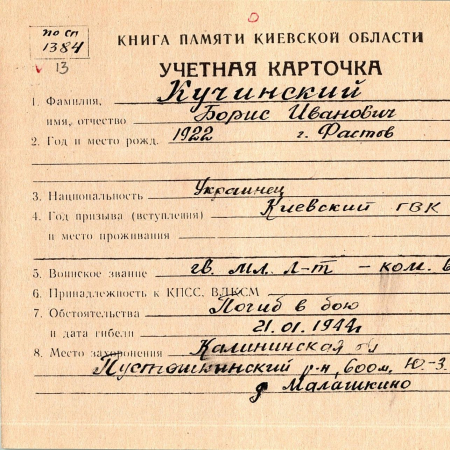 по сп
1384
13
КНИГА ПАМЯТИ КИЕВСКОЙ ОБЛАСТИ
УЧЕТНАЯ КАРТОЧКА
1. Фамилия, Кучинский
имя, отчество Борис Иванович
2. Год и место рожд. 1922 г. Фастов
3. Национальность Украинец
4. Год призыва (вступления) Киевский ГВК
и место проживания
5. Воинское звание гв. мл. л-т – ком.
6. Принадлежность к КПСС, ВЛКСМ
7. Обстоятельства Погиб в бою
и дата гибели 21.01.1944г
8. Место захоронения Калининская
Пустошкинский р-н, 600м, Ю-З.
д Малашкино